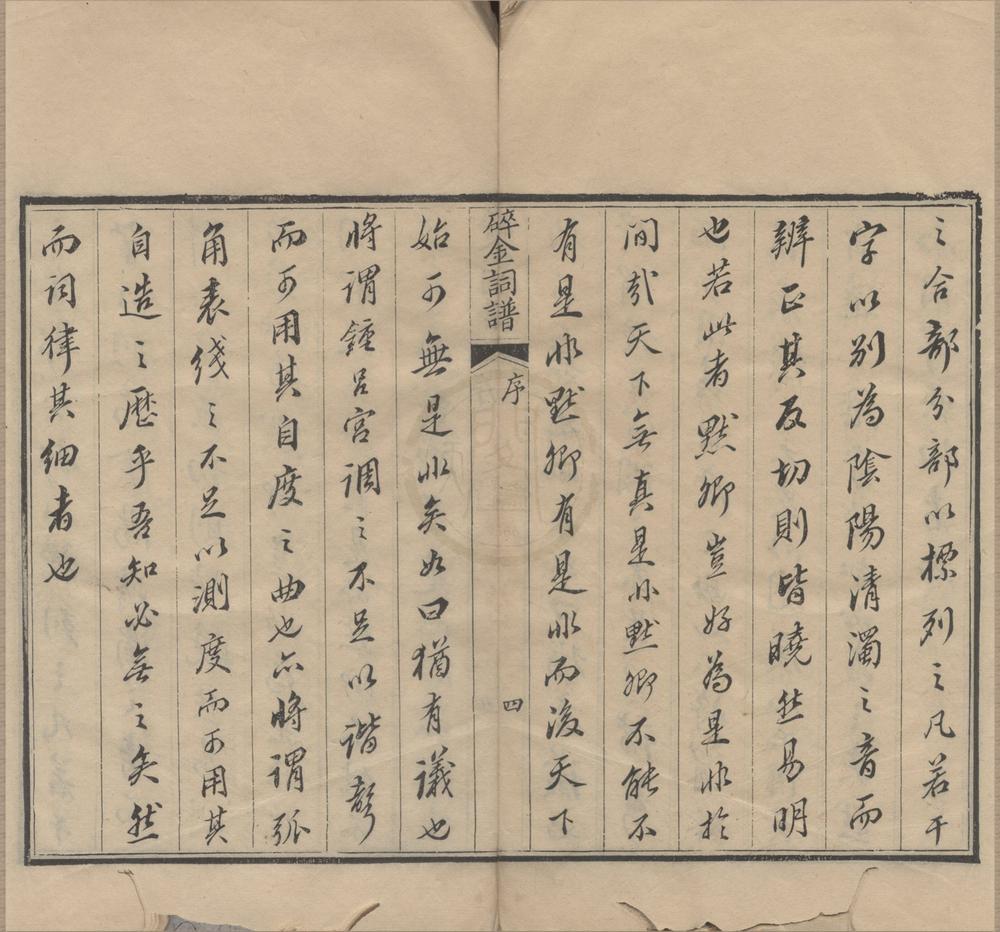 之合部分部以標列之凡若干
字以別為陰陽清濁之音而
辨正其反切則皆曉然易明
也若此者默卿豈好為是非於
間哉天下無真是非默卿不能不
有是非默卿有是非而後天下
碎金詞譜 序 四
始可無是非矣如曰猶有議也
將謂鍾呂宮调之不足以谐聲
而可用其自度之曲也亦將谓弧
角表线之不足以測度而可用其
自造之歷乎吾知必無之矣然
而词律其细者也